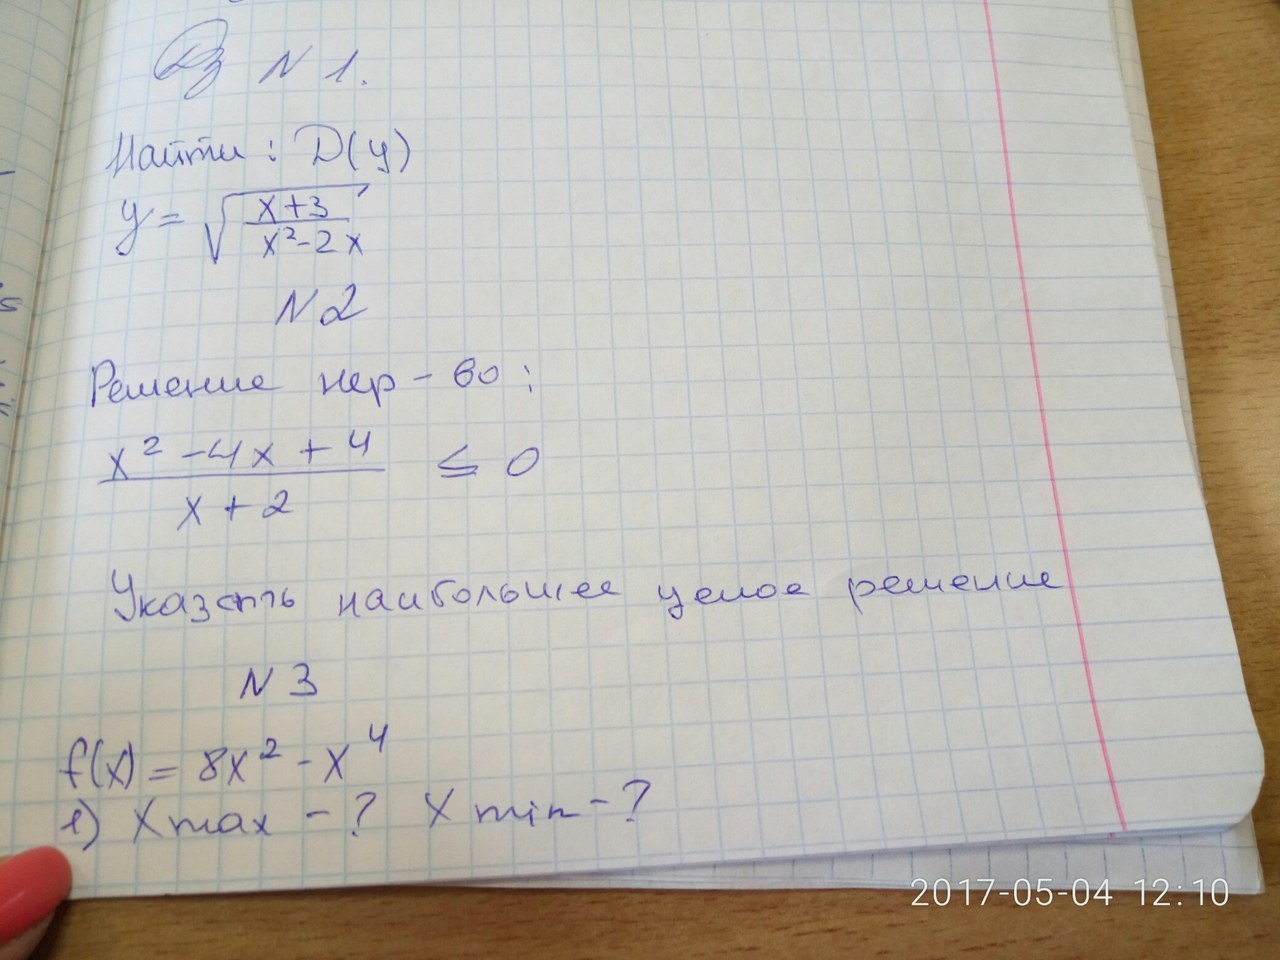 ДЗ N 1.
Найти : D(y)
y = √((x+3)/(x²-2x))
N 2
Решение нер-во :
(x² - 4x + 4)/(x + 2) ≤ 0
Указать наибольшее целое решение
N 3
f(x) = 8x² - x⁴
1) X max - ? X min - ?
2017-05-04 12:10